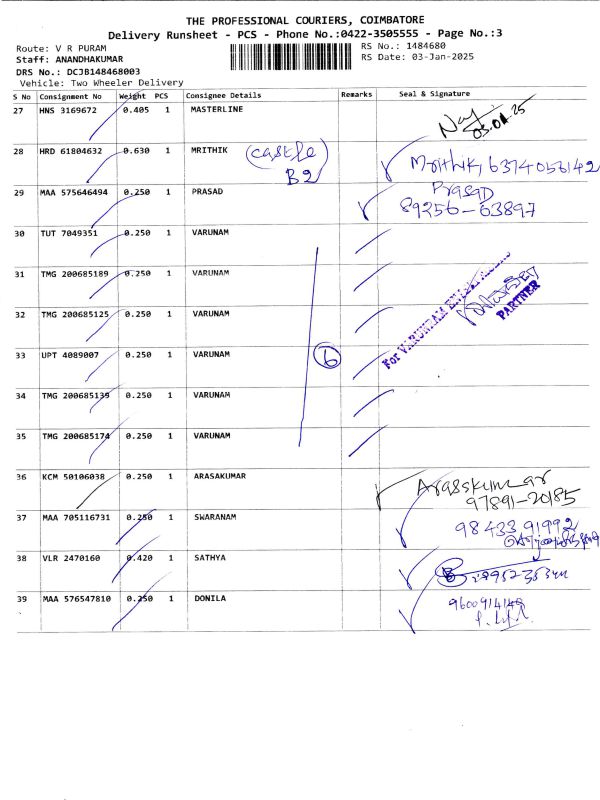 THE PROFESSIONAL COURIERS, COIMBATORE
Delivery Runsheet - PCS - Phone No.:0422-3505555 - Page No.:3
Route: V R PURAM RS No.: 1484680
Staff: ANANDHAKUMAR RS Date: 03-Jan-2025
DRS No.: DCJB148468003
Vehicle: Two Wheeler Delivery
S No Consignment No Weight PCS Consignee Details Remarks Seal & Signature
27 HNS 3169672 0.405 1 MASTERLINE
28 HRD 61804632 0.630 1 MRITHIK (Castle B2) Mrithik, 6374056142
29 MAA 575646494 0.250 1 PRASAD Prasad
89256-63897
30 TUT 7049351 0.250 1 VARUNAM
31 TMG 200685189 0.250 1 VARUNAM
32 TMG 200685125 0.250 1 VARUNAM PARTNER
33 UPT 4089007 0.250 1 VARUNAM 6
34 TMG 200685139 0.250 1 VARUNAM
35 TMG 200685174 0.250 1 VARUNAM
36 KCM 50106038 0.250 1 ARASAKUMAR Arasskumar
97891-20185
37 MAA 705116731 0.250 1 SWARANAM 98433 91992
38 VLR 2470160 0.420 1 SATHYA
39 MAA 576547810 0.250 1 DONILA 9600914140